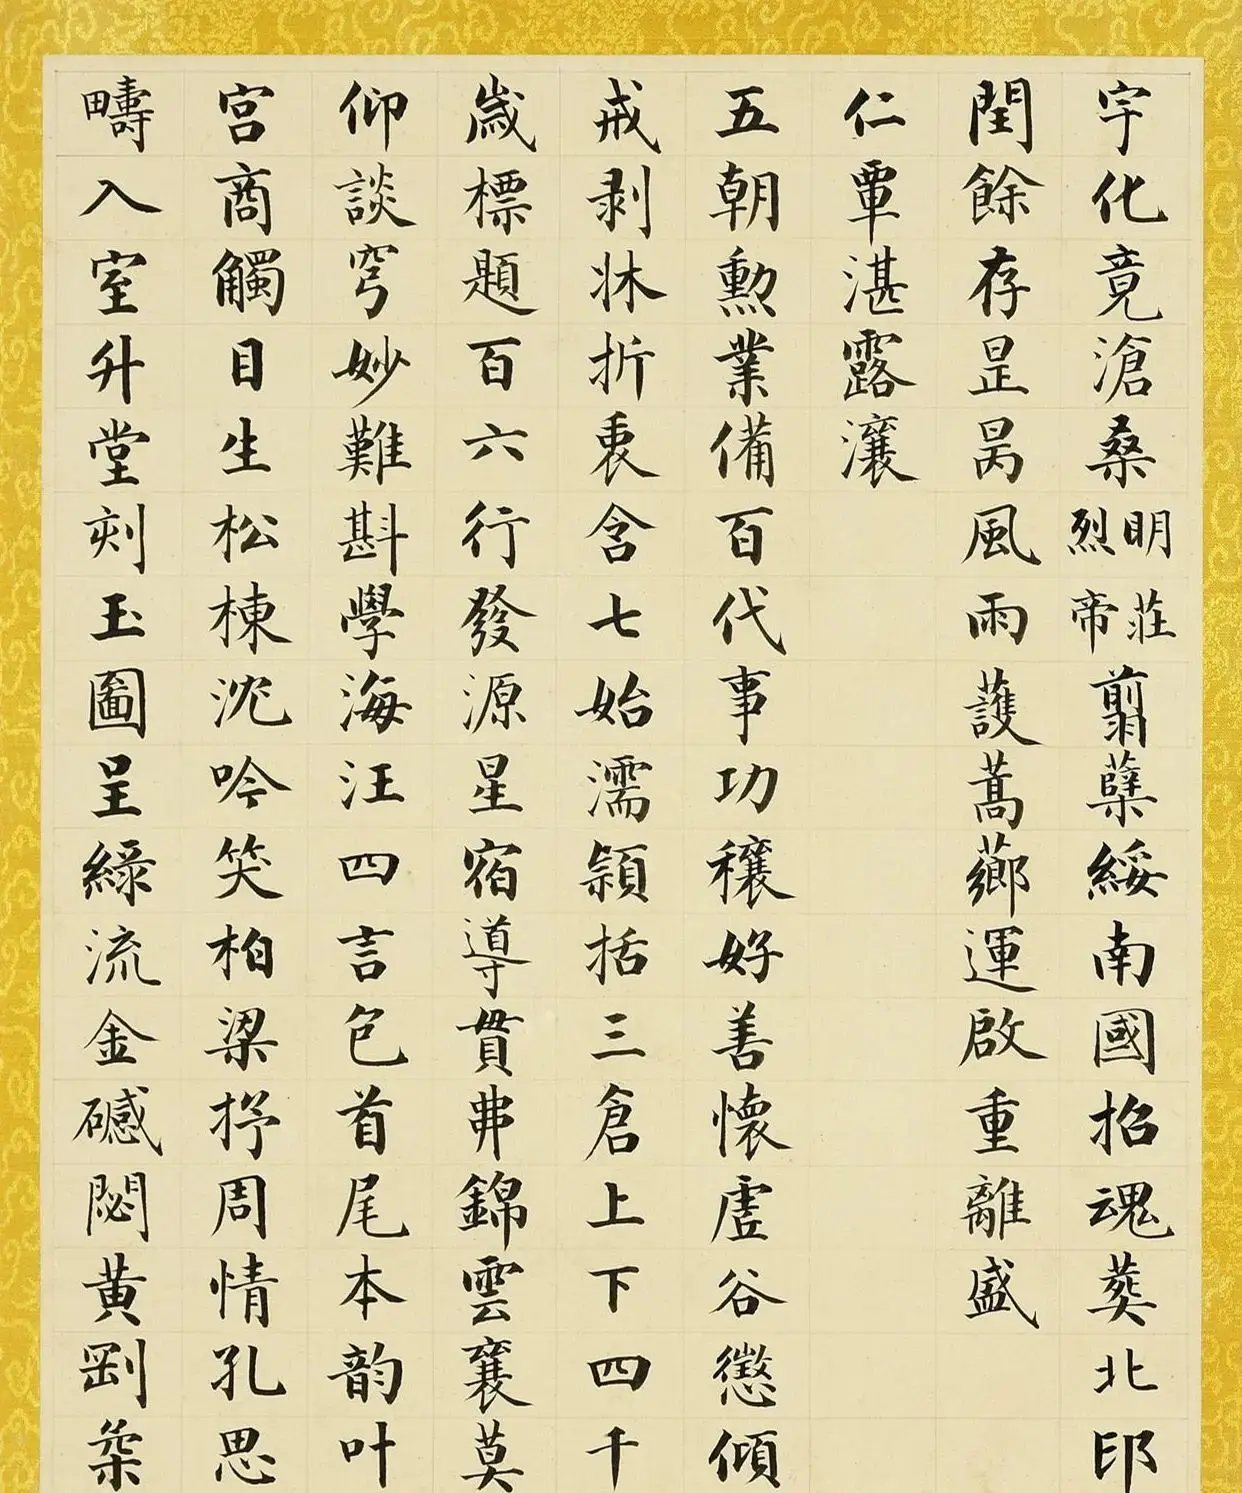 宇化竟滄桑明莊烈帝翦蘖綏南國招魂葬北邙
閏餘存是昺風雨護蒿薌運啟重離盛
仁覃湛露瀼
五朝勲業備百代事功穰好善懷虛谷懲傾
戒剥牀折衷含七始濡穎括三倉上下四千
歲標題百六行發源星宿導貫弗錦雲襄莫
仰談穹妙難斟學海汪四言包首尾本韵叶
宮商觸目生松棟沈吟笑柏梁抒周情孔思
疇入室升堂刻玉圖呈綠流金礠閟黃剛